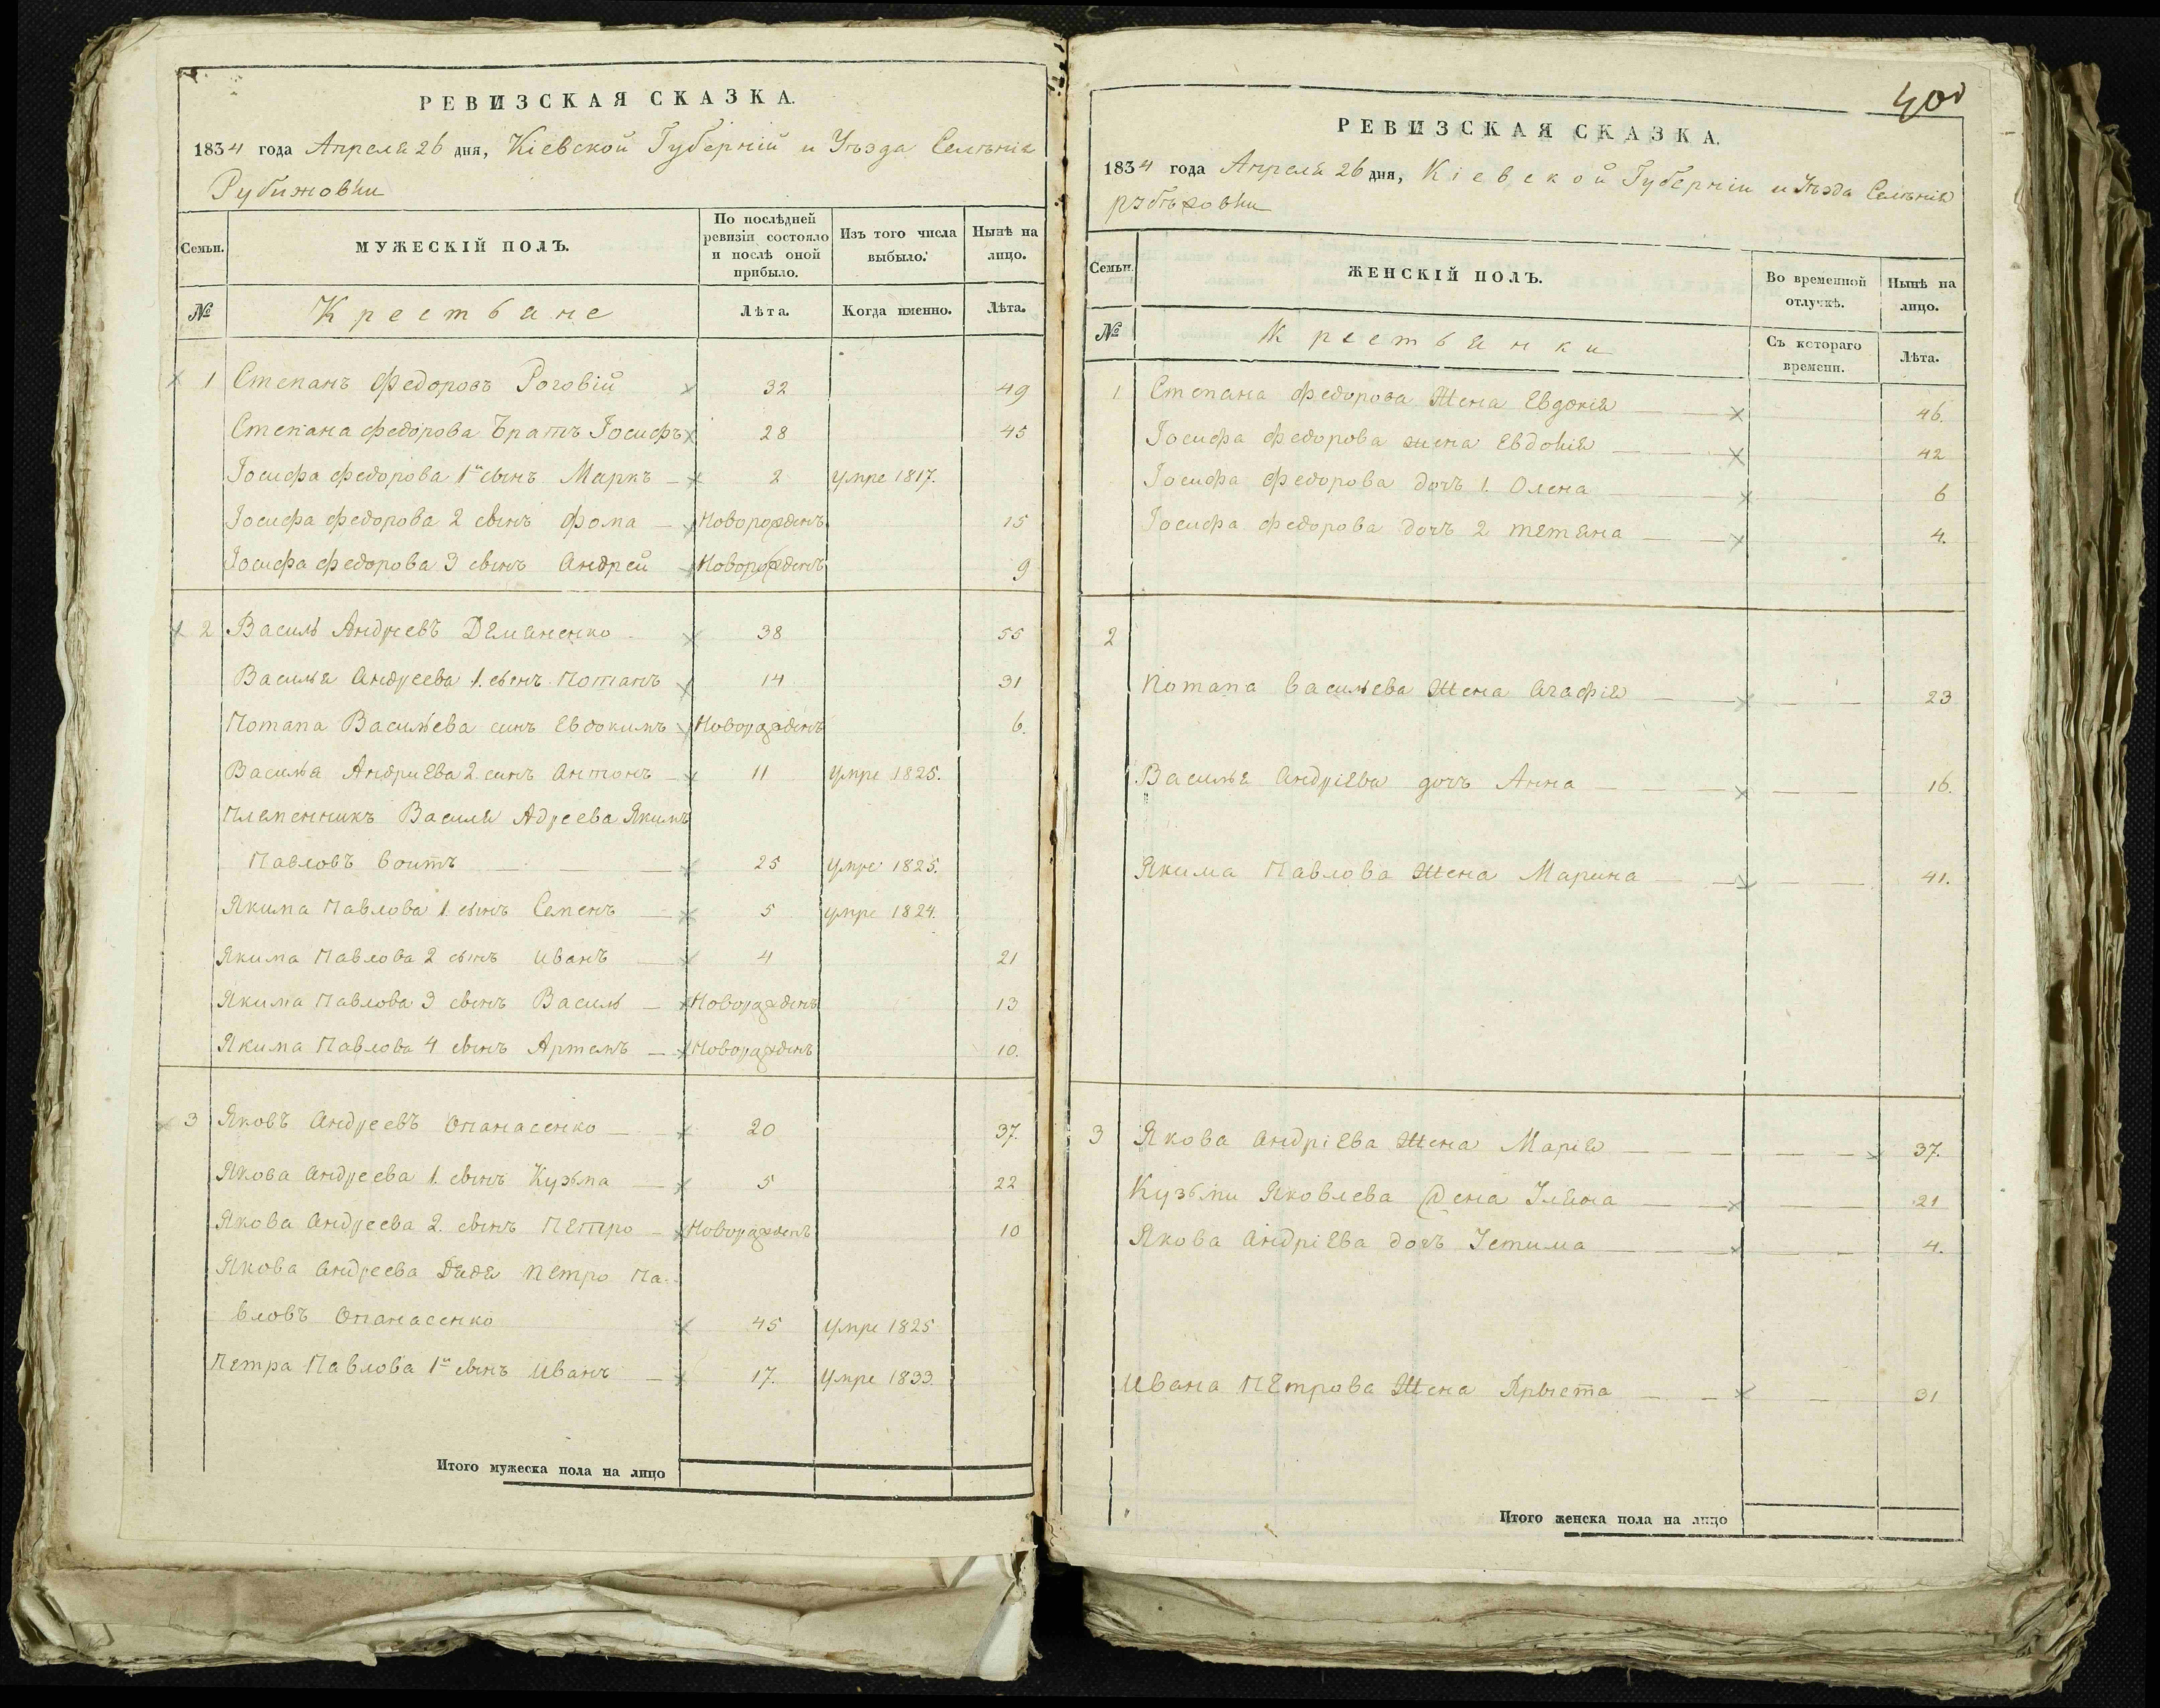 РЕВИЗСКАЯ СКАЗКА.
1834 года Апреля 26 дня, Кіевской Губерній и Уъзда Селѣнія
Рубижовки
Семьи.
МУЖЕСКІЙ ПОЛЪ.
По послѣдней ревизіи состояло и послѣ оной прибыло.
Изъ того числа выбыло.
Нынѣ на лицо.
№
Крестьяне
Лѣта.
Когда именно.
Лѣта.
1 Степанъ Федоровъ Роговій 32 49
Степана Федорова Братъ Іосифъ 28 45
Іосифа Федорова 1й сынъ Маркъ 2 умре 1817.
Іосифа Федорова 2 сынъ Фома Новорожденъ 15
Іосифа Федорова 3 сынъ Андрей Новорожденъ 9
2 Василь Андреевъ Дяманенко 38 55
Василья Андреева 1. сынъ Потапъ 14 31
Потапа Васильева синъ Евдокимъ Новорожденъ 6.
Василья Андриева 2 синъ Антонъ 11 умре 1825.
Племенникъ Василя Адреева Якимъ
Павловъ Воитъ 25 умре 1825.
Якима Павлова 1 сынъ Семенъ 5 умре 1824.
Якима Павлова 2 сынъ Иванъ 4 21
Якима Павлова 3 сынъ Василь Новорожденъ 13
Якима Павлова 4 сынъ Артемъ Новорожденъ 10.
3 Яковъ Андреевъ Опанасенко 20 37.
Якова Андреева 1. сынъ Кузьма 5 22
Якова Андреева 2. сынъ Петро Новорожденъ 10
Якова Андреева Дядя Петро Па-
вловъ Опанасенко 45 умре 1825
Петра Павлова 1й сынъ Иванъ 17. умре 1833.
Итого мужеска пола на лицо
400
РЕВИЗСКАЯ СКАЗКА.
1834 года Апреля 26 дня, Кіевской Губерніи и Уѣзда Селѣнія
Семьи.
ЖЕНСКІЙ ПОЛЪ.
Во временной отлучкѣ.
Нынѣ на лицо.
№
Крестьянки
Съ котораго времени.
Лѣта.
1 Степана Федорова Жена Евдокія 46.
Іосифа Федорова жена Евдокія 42
Іосифа Федорова дочъ 1. Олена 6
Іосифа Федорова дочъ 2 Тетяна 4.
2
Потапа Васильева Жена Агафія 23
Василья Андріева дочъ Анна 16.
Якима Павлова Жена Марина 41.
3 Якова Андріева Жена Марія 37.
Кузьми Яковлева Жена Уляна 21
Якова Андріева дочъ Устима 4.
Ивана Петрова Жена 31
Итого женска пола на лицо